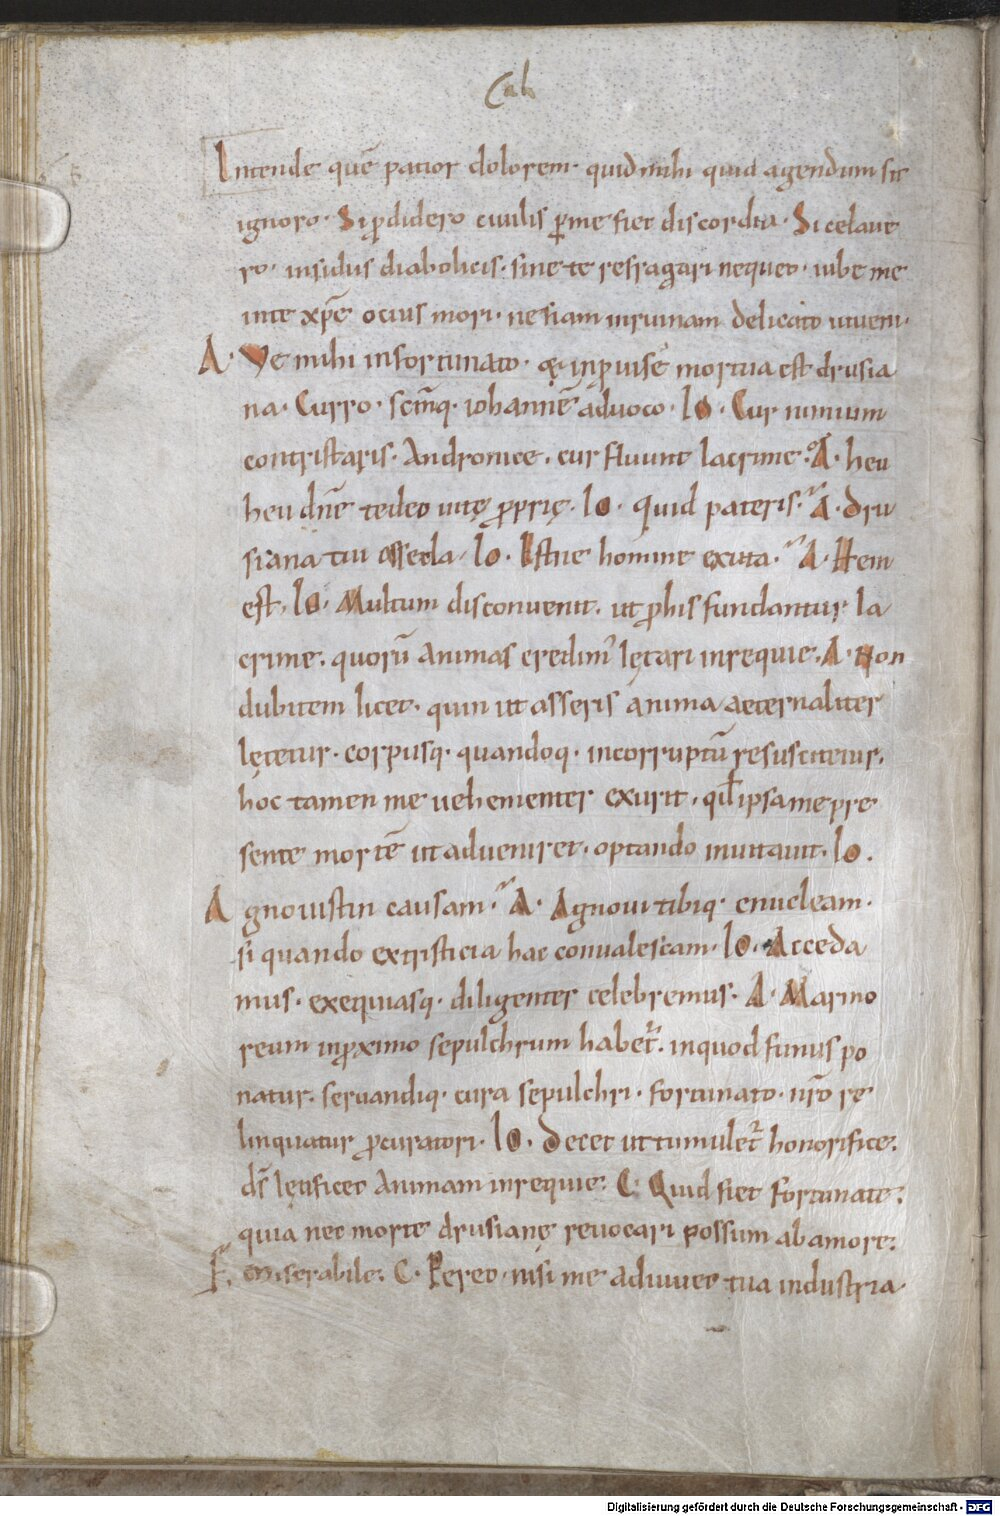 Cal
Intende quē patior dolorem· quid mihi quid agendum sit
ignoro· Si ꝓdidero ciuilis ꝑ me fiet discordia· Si celaue
ro· insidiis diabolicis· sine te refragari nequeo· iube me
in te xp̄e ocius mori· ne fiam in ruinam delicato iuueni·
A· Ve mihi infortunato· ex inꝓuiso mortua est drusia
na· Curro· sc̄mq· iohannē aduoco· Io· Cur nimium
contristaris· Andronice· cur fluunt lacrime· A· heu
heu dn̄e tedeo uitę ꝓprię· Io· Quid pateris· A· Dru
siana tui assecla· Io· Estne homine exuta· A· Hem
est· Io· Multum disconuenit· ut ꝓ his fundantur la
crime· quorū animas credim' lętari in requie· A· Non
dubitem licet· quin ut asseris anima aeternaliter
lętetur· corpusq· quandoq· incorruptū resuscitetur·
hoc tamen me uehementer exurit· qđ ipsa me pre
sente mortē ut adueniret· optando inuitauit· Io·
Agnouistin causam· A· Agnoui tibiq· enucleam·
si quando ex tristicia hac conualescam· Io· Acceda
mus· exequiasq· diligenter celebremus· A· Marmo
reum in ꝓximo sepulchrum habet᷑· in quod funus po
natur· seruandiq· cura sepulchri· fortunato· nr̄o re
linquatur ꝓcuratori· Io· Decet ut tumulet᷑ honorifice·
ds̄ lętificet animam in requie· C· Quid fiet fortunate·
quia nec morte drusianę reuocari possum ab amore·
F· Miserabile· C· Pereo· nisi me adiuuet tua industria·
Digitalisierung gefördert durch die Deutsche Forschungsgemeinschaft - DFG